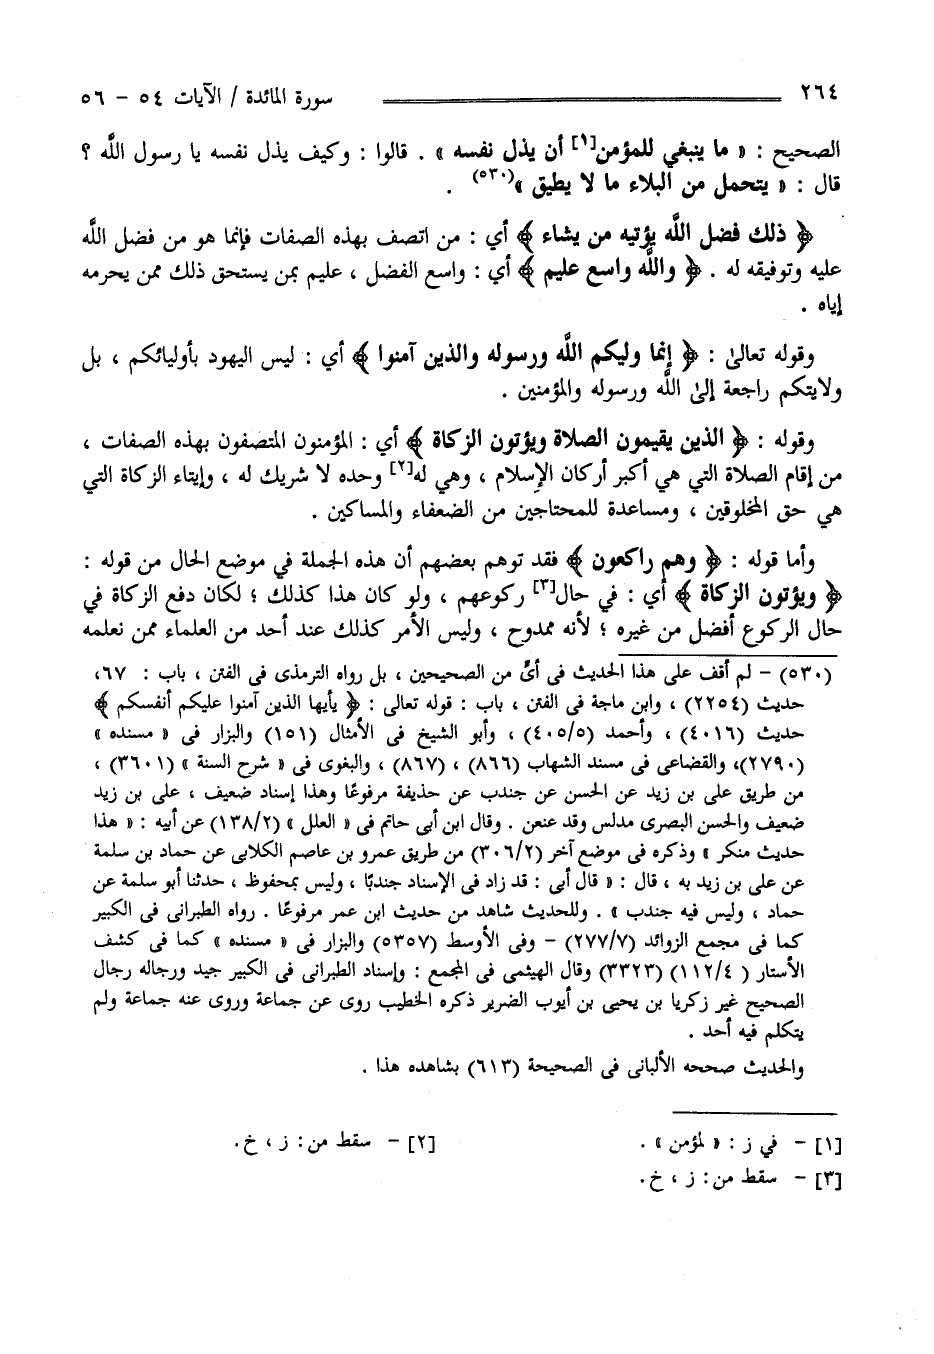 ٢٦٤ سورة المائدة / الآيات ٥٤ - ٥٦
الصحيح : « ما ينبغي للمؤمن[١] أن يذل نفسه » . قالوا : وكيف يذل نفسه يا رسول الله ؟
قال : « يتحمل من البلاء ما لا يطيق »(٥٣٠) .
﴿ ذلك فضل الله يؤتيه من يشاء ﴾ أي : من اتصف بهذه الصفات فإنما هو من فضل الله
عليه وتوفيقه له . ﴿ والله واسع عليم ﴾ أي : واسع الفضل ، عليم بمن يستحق ذلك ممن يحرمه
إياه .
وقوله تعالىٰ : ﴿ إنما وليكم الله ورسوله والذين آمنوا ﴾ أي : ليس اليهود بأوليائكم ، بل
ولايتكم راجعة إلىٰ الله ورسوله والمؤمنين .
وقوله : ﴿ الذين يقيمون الصلاة ويؤتون الزكاة ﴾ أي : المؤمنون المتصفون بهذه الصفات ،
من إقام الصلاة التي هي أكبر أركان الإسلام ، وهي له[٢] وحده لا شريك له ، وإيتاء الزكاة التي
هي حق المخلوقين ، ومساعدة للمحتاجين من الضعفاء والمساكين .
وأما قوله : ﴿ وهم راكعون ﴾ فقد توهم بعضهم أن هذه الجملة في موضع الحال من قوله :
﴿ ويؤتون الزكاة ﴾ أي : في حال[٣] ركوعهم ، ولو كان هذا كذلك ؛ لكان دفع الزكاة في
حال الركوع أفضل من غيره ؛ لأنه ممدوح ، وليس الأمر كذلك عند أحد من العلماء ممن نعلمه
(٥٣٠) - لم أقف على هذا الحديث فى أىٍّ من الصحيحين ، بل رواه الترمذى فى الفتن ، باب : ٦٧،
حديث (٢٢٥٤) ، وابن ماجة فى الفتن ، باب : قوله تعالى : ﴿ يأيها الذين آمنوا عليكم أنفسكم ﴾
حديث (٤٠١٦) ، وأحمد (٤٠٥/٥) ، وأبو الشيخ فى الأمثال (١٥١) والبزار فى « مسنده »
(٢٧٩٠)، والقضاعى فى مسند الشهاب (٨٦٦) ، (٨٦٧) ، والبغوى فى « شرح السنة » (٣٦٠١) ،
من طريق على بن زيد عن الحسن عن جندب عن حذيفة مرفوعًا وهذا إسناد ضعيف ، على بن زيد
ضعيف والحسن البصرى مدلس وقد عنعن . وقال ابن أبى حاتم فى « العلل » (١٣٨/٢) عن أبيه : « هذا
حديث منكر » وذكره فى موضع آخر (٣٠٦/٢) من طريق عمرو بن عاصم الكلابى عن حماد بن سلمة
عن على بن زيد به ، قال : « قال أبى : قد زاد فى الإسناد جندبًا ، وليس بمحفوظ ، حدثنا أبو سلمة عن
حماد ، وليس فيه جندب » . وللحديث شاهد من حديث ابن عمر مرفوعًا . رواه الطبرانى فى الكبير
كما فى مجمع الزوائد (٢٧٧/٧) - وفى الأوسط (٥٣٥٧) والبزار فى « مسنده » كما فى كشف
الأستار ( ١١٢/٤) (٣٣٢٣) وقال الهيثمى فى المجمع : وإسناد الطبرانى فى الكبير جيد ورجاله رجال
الصحيح غير زكريا بن يحيى بن أيوب الضرير ذكره الخطيب روى عن جماعة وروى عنه جماعة ولم
يتكلم فيه أحد .
والحديث صححه الألبانى فى الصحيحة (٦١٣) بشاهده هذا .
[١] - في ز : « لمؤمن » . [٢] - سقط من: ز ، خ.
[٣] - سقط من: ز ، خ.